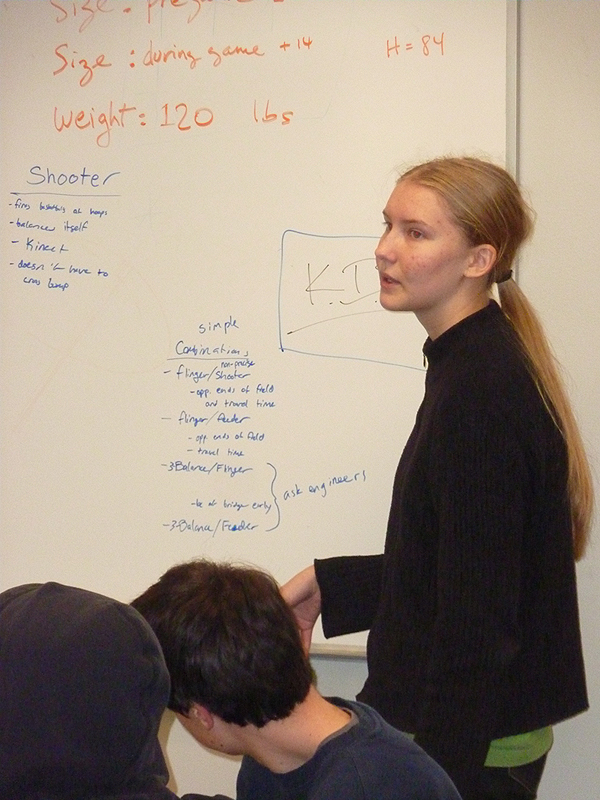 Size: pregame
Size : during game +14
H = 84
Weight: 120 lbs
Shooter
- fires basketballs at hoops
- balances itself
- Kinect
- doesn't have to
cross bump
K.I.
simple
Combinations
non-precise
- flinger/shooter
- opp. ends of field
and travel time
- flinger/feeder
- opp. ends of field
- travel time
- 3Balance/Flinger
ask engineers
- be at bridge early
- 3-Balance/Feeder